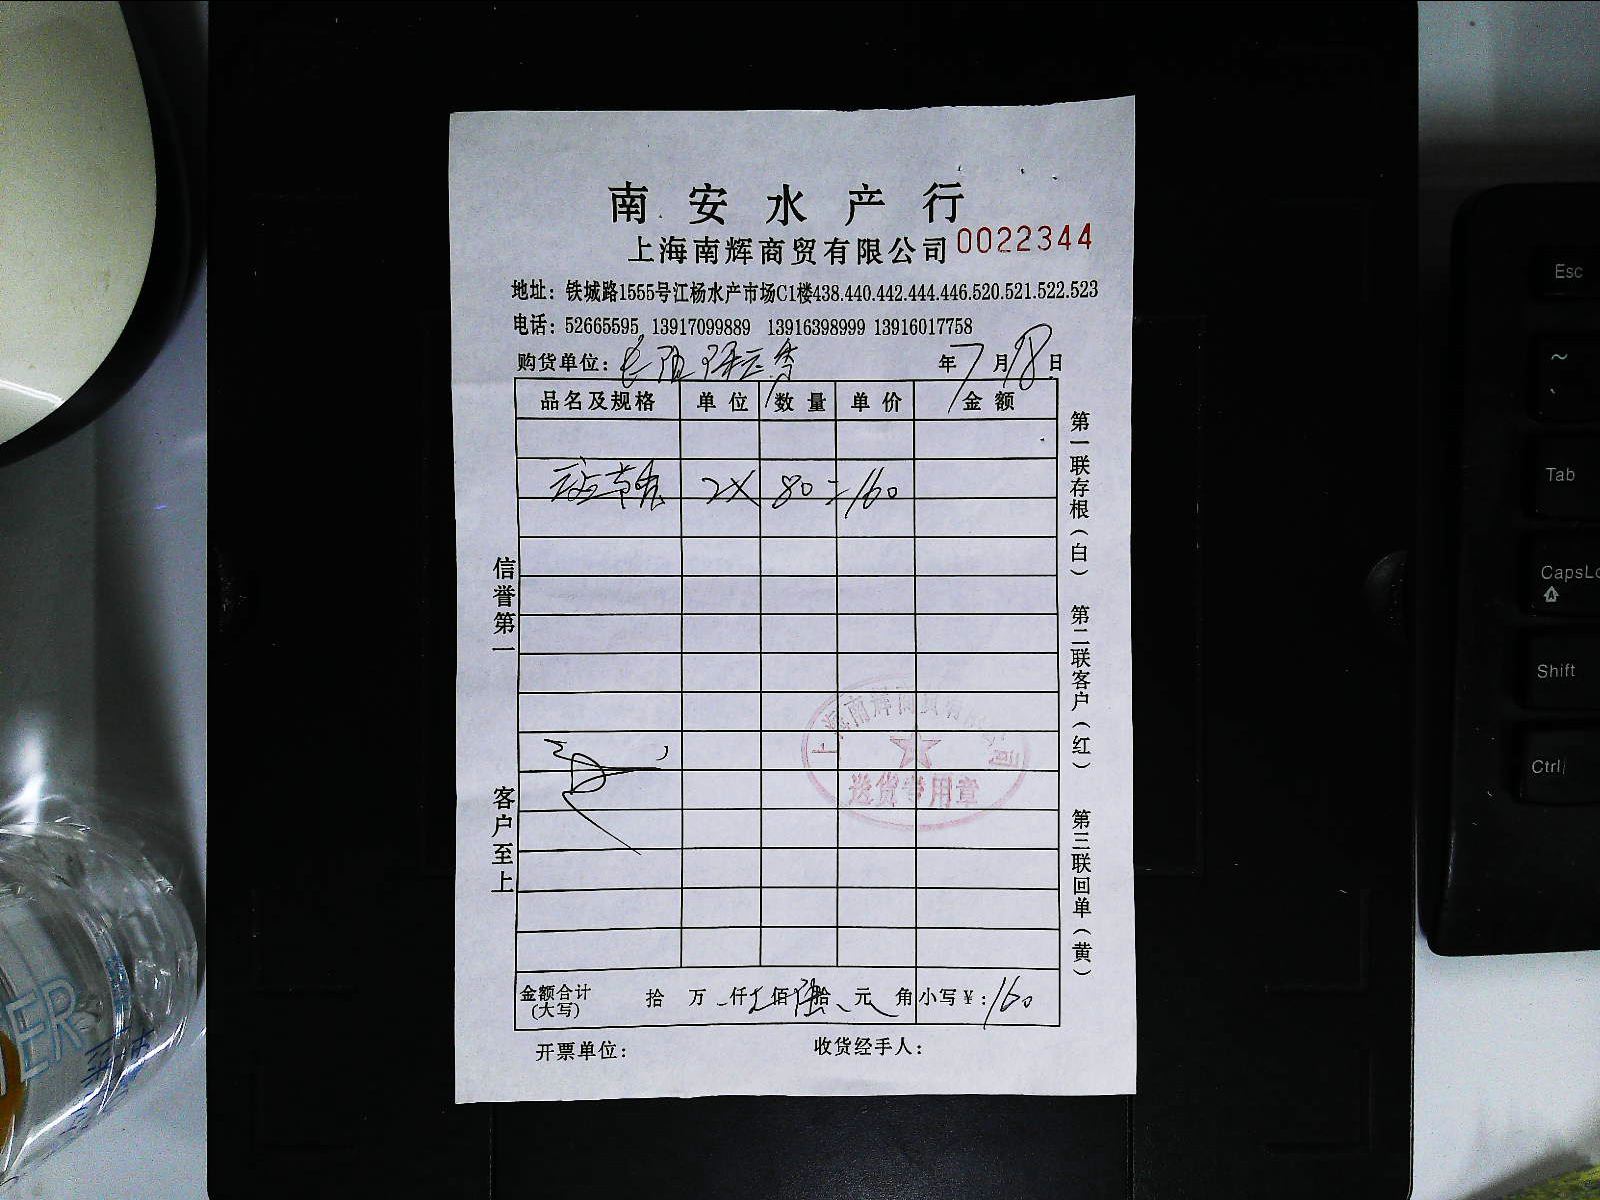 南安水产行
上海南辉商贸有限公司 0022344
地址：铁城路1555号江杨水产市场C1楼438.440.442.444.446.520.521.522.523
电话：52665595 13917099889 13916398999 13916017758
购货单位： 年7月18日
品名及规格 单位 数量 单价 金额
2X 80=160
金额合计(大写) 拾 万 仟 佰 拾 元 角 小写￥：160
开票单位： 收货经手人：
信誉第一
客户至上
第一联存根（白） 第二联客户（红） 第三联回单（黄）
上海南辉商贸有限公司
送货专用章
Esc
~
Tab
CapsLo
Shift
Ctrl
ER